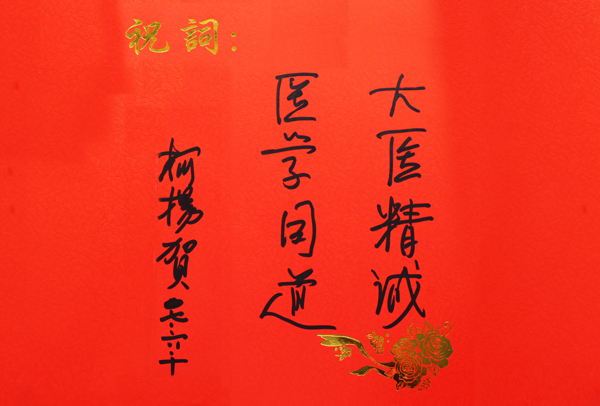 祝詞：
大医精诚
医学同道
柯楊賀 七.六.十